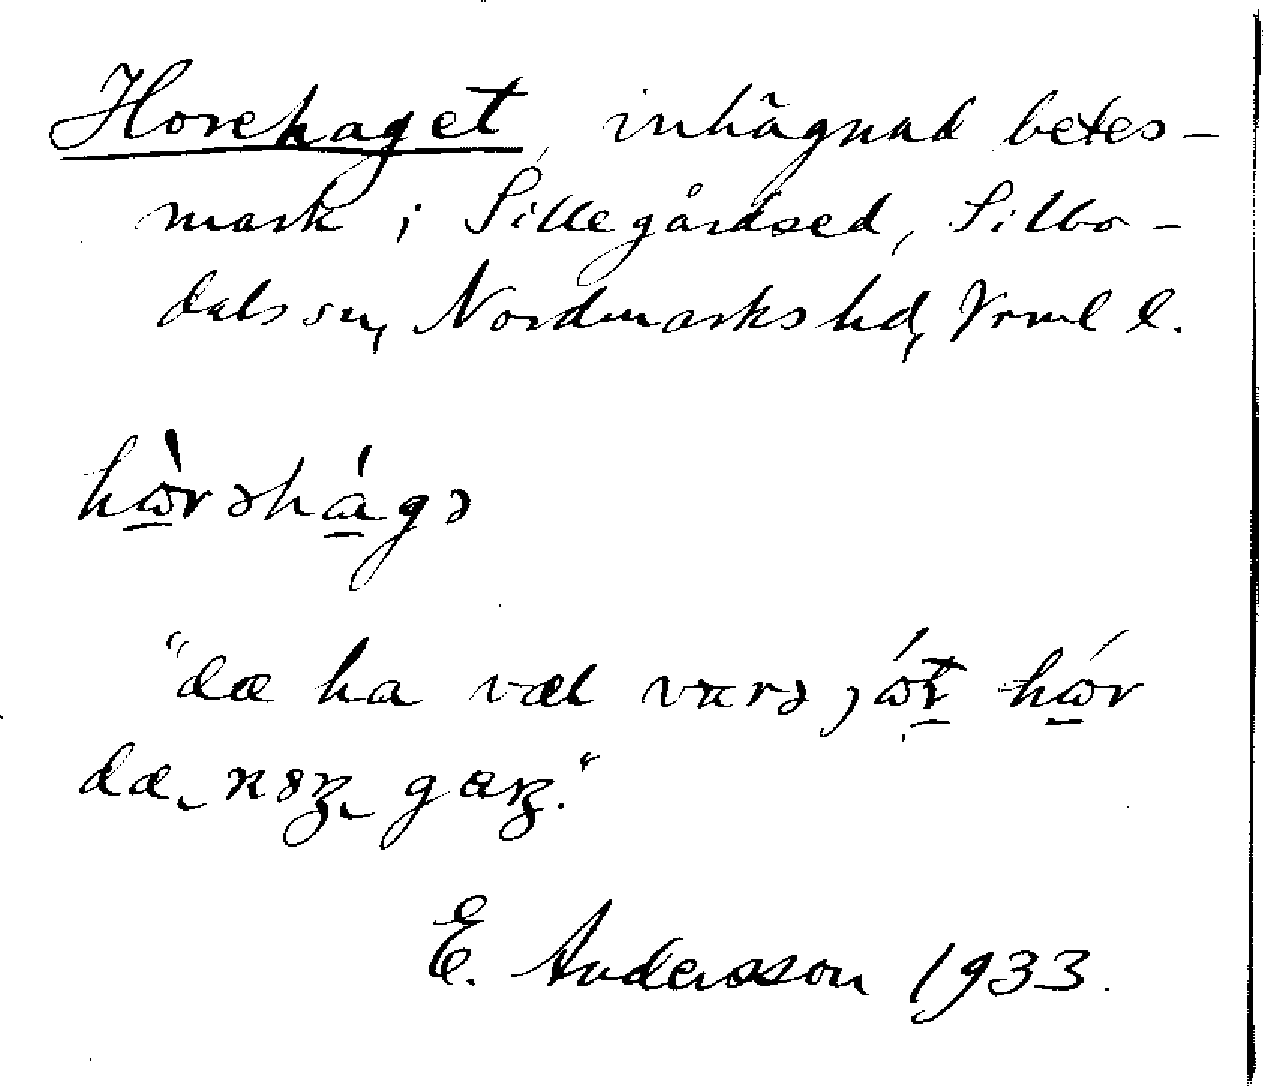 Horehaget, inhägnad betes-
mark i Sillegårdsed, Silbo-
dals sn, Nordmarks hd, Vrml l.
hὼrəhágə
"dæ ha væl varə jώţ hώr
dæ gaʒ."
E. Andersson 1933.